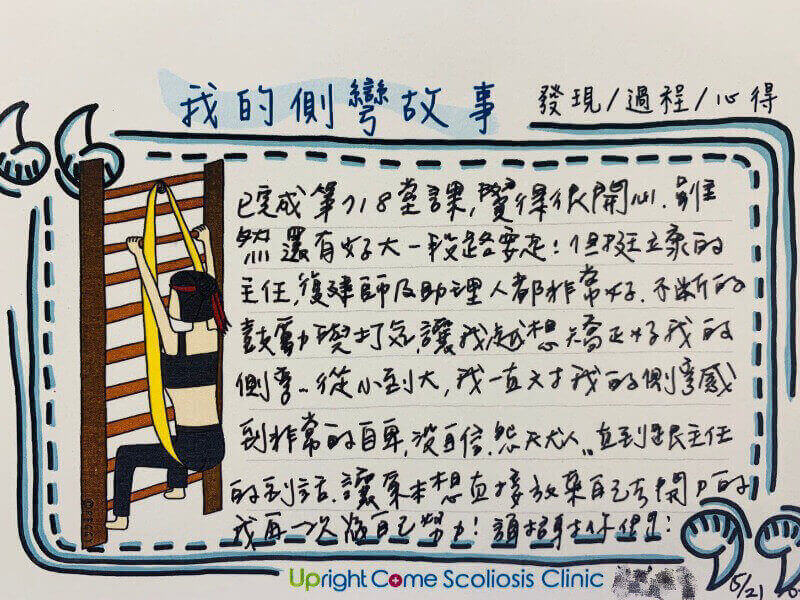 我的側彎故事 發現/過程/心得
已完成第718堂課,覺得很開心.雖
然還有好大一段路要走!但挺立康的
主任,復建師及助理人都非常好.不斷的
鼓勵與打氣,讓我越想矯正好我的
側彎..從小到大,我一直對我的側彎感
到非常的自卑,沒自信.怨天尤人..直到主任
的話.讓原本想直接放棄自己去開刀的
我再一次為自己努力!
Upright Come Scoliosis Clinic
5/21